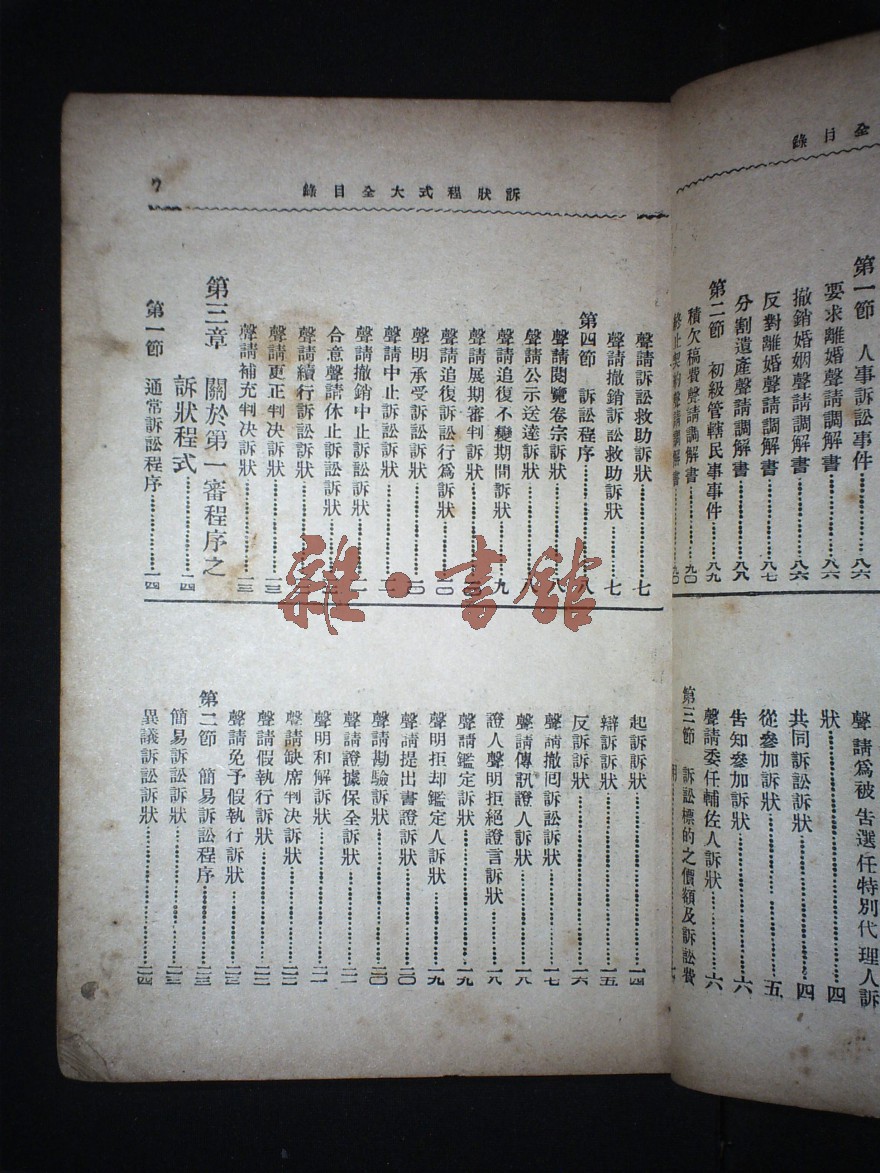 全目錄
第一節 人事訴訟事件……八六
要求離婚聲請調解書……八六
撤銷婚姻聲請調解書……八六
反對離婚聲請調解書……八七
分割遺產聲請調解書……八八
第二節 初級管轄民事事件……八九
積欠稿費聲請調解書……九〇
終止契約聲請調解書……九〇
聲請爲被告選任特別代理人訴
狀……四
共同訴訟訴狀……四
從參加訴狀……五
告知參加訴狀……六
聲請委任輔佐人訴狀……六
第三節 訴訟標的之價額及訴訟費
訴狀程式大全目錄
7
聲請訴訟救助訴狀……七
聲請撤銷訴訟救助訴狀……七
第四節 訴訟程序……八
聲請閱覽卷宗訴狀……八
聲請公示送達訴狀……八
聲請追復不變期間訴狀……九
聲請展期審判訴狀……
聲請追復訴訟行爲訴狀……一〇
聲明承受訴訟訴狀……一〇
聲請中止訴訟訴狀……
聲請撤銷中止訴訟訴狀……
合意聲請休止訴訟訴狀……
聲請續行訴訟訴狀……
聲請更正判決訴狀……一三
聲請補充判決訴狀……一三
第三章 關於第一審程序之
訴狀程式……一四
第一節 通常訴訟程序……一四
起訴訴狀……一四
辯訴訴狀……一五
反訴訴狀……一六
聲請撤囘訴訟訴狀……一七
聲請傳訊證人訴狀……一八
證人聲明拒絕證言訴狀……一八
聲請鑑定訴狀……一九
聲明拒却鑑定人訴狀……一九
聲請提出書證訴狀……二〇
聲請勘驗訴狀……二〇
聲請證據保全訴狀……二一
聲明和解訴狀……二一
聲請缺席判決訴狀……二二
聲請假執行訴狀……二二
聲請免予假執行訴狀……二三
第二節 簡易訴訟程序……二三
簡易訴訟訴狀……二三
異議訴訟訴狀……二四
雜·書館